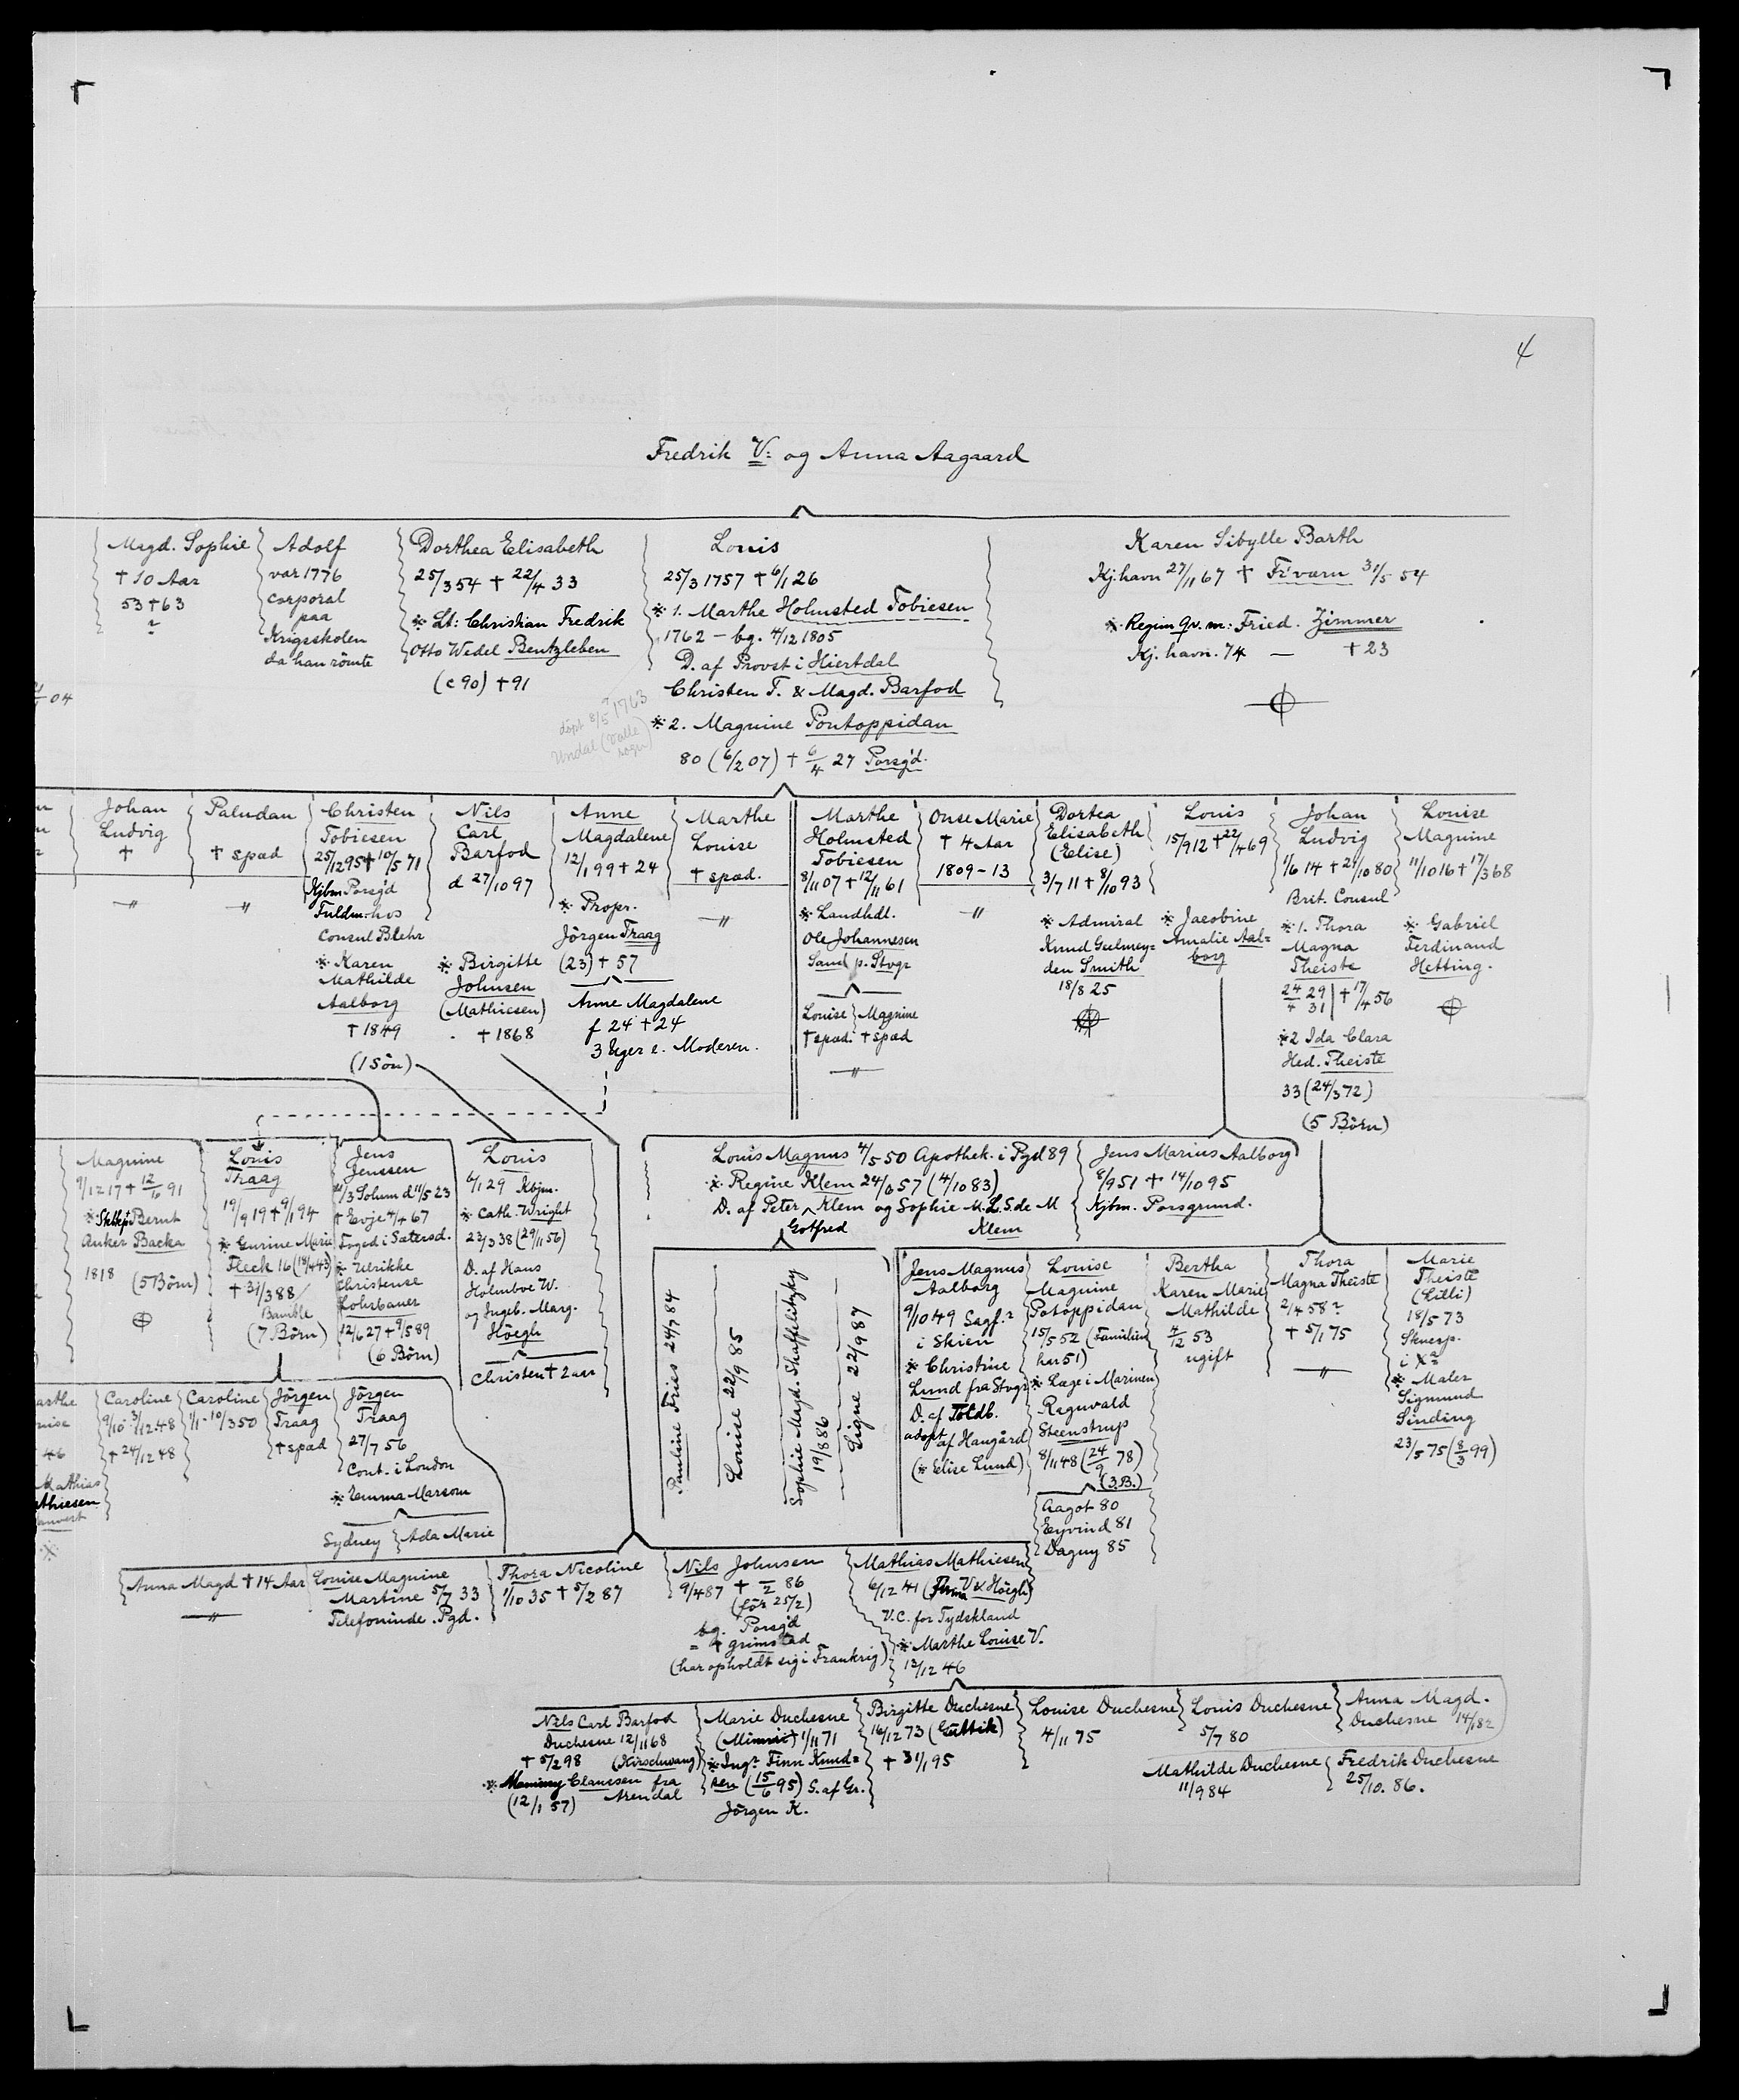 4
Fredrik V: og Anna Aagaard
Magd. Sophie
† 10 Aar
53 † 63
Adolf
var 1776
corporal
paa
Krigsskolen
da han römte
Dorthea Elisabeth
25/3 54 † 22/4 33
* Lt: Christian Fredrik
Otto Wedel Bentzleben
(c 90) † 91
Louis
25/3 1757 † 6/1 26
* 1. Marthe Holmsted Tobiesen
1762 – bg. 4/12 1805
D. af Provst i Hiertdal
Christen T. & Magd. Barfod
* 2. Magnine Pontoppidan
80 (6/2 07) † 6/4 27 Porsg'd.
döpt 8/5 1763
Undal (Valle
sogn)
Karen Sibylle Barth
Kj.havn 27/11 67 † Fr.værn 31/5 54
* Regim Qv. m: Fried. Zimmer
Kj. havn. 74 — † 23
04
Johan
Ludvig
†
-"-
Paludan
† spæd
-"-
Christen
Tobiesen
25/12 95 † 10/5 71
Kjbm Porsg'd
Fuldm. hos
Consul Blehr
* Karen
Mathilde
Aalborg
† 1849
(1 Sön)
Nils
Carl
Barfod
d 27/10 97
* Birgitte
Johnsen
(Mathiesen)
† 1868
Anne
Magdalene
12/1 99 † 24
* Propr.
Jörgen Traag
(23) † 57
Anne Magdalene
f 24 † 24
3 Uger e. Moderen.
Marthe
Louise
† spæd.
-"-
Marthe
Holmsted
Tobiesen
8/11 07 † 12/11 61
* Landhdl.
Ole Johannesen
Sand p. Stvgr
Louise } Magnine
† spæd. † spæd
-"-
Onse Marie
† 4 Aar
1809 – 13
-"-
Dortea
Elisabeth
(Elise)
3/7 11 † 8/10 93
* Admiral
Knud Geelmey=
den Smith
18/8 25
Louis
15/9 12 † 22/4 69
* Jacobine
Amalie Aal=
borg
Johan
Ludvig
1/6 14 † 21/10 80
Brit. Consul
* 1. Thora
Magna
Theiste
24/4 29 | † 17/4 56
31
* 2 Ida Clara
Hed. Theiste
33 (24/3 72)
(5 Börn)
Louise
Magnine
11/10 16 † 17/3 68
* Gabriel
Ferdinand
Hetting.
Magnine
9/12 17 † 12/6 91
* Skbkpt. Bernt
Anker Backa
1818 (5 Börn)
Louis
Traag
19/9 19 † 9/1 94
* Gurine Marie
Fleck 16 (18/4 43)
† 31/3 88
Bamble
(7 Börn)
Jens
Jenssen
Solum d 11/5 23
† Evje 4/4 67
Foged i Sætersd.
* Ulrikke
Christense
Lohrbauer
12/6 27 † 9/5 89
(6 Börn)
Louis
6/1 29 Kbjm.
* Cath. Wright
23/3 38 (29/11 56)
D. af Hans
Holmboe W.
og Ingeb. Marg.
Höegh
Christen † 2 aar
Louis Magnus 4/5 50 Apothek. i Pgd 89
* Regine Klem 24/6 57 (4/10 83)
D. af Peter Klem og Sophie M. L. S. de M
Gotfred Klem
Jens Marius Aalborg
8/9 51 † 14/10 95
Kjbm. Porsgrund.
Pauline Fries 24/7 84
Louise 22/9 85
Sophie Magd. Shaffelitzky
19/8 86
Signe 22/9 87
Jens Magnus
Aalborg
9/10 49 Sagf.r
i Skien
* Christine
Lund fra Stvgr
D. af Toldb.
adopt af Haugård
(* Elise Lund)
Louise
Magnine
Potoppidan
15/5 52 (Familien
har 51)
* Læge i Marinen
Regnvald
Steenstrup
8/11 48 (24/9 78)
(3. B.)
Aagot 80
Eyvind 81
Dagny 85
Bertha
Karen Marie
Mathilde
4/12 53
ugift
Thora
Magna Theiste
2/4 58
† 5/1 75
-"-
Marie
Theiste
(Lilli)
18/5 73
Skuesp.
i Xa
* Maler
Sigmund
Sinding
23/5 75 (8/3 99)
Mathias
Caroline
9/10 3/12 48
† 24/12 48
Caroline
1/1 - 10/3 50
Jörgen
Traag
† spæd
Jörgen
Traag
27/7 56
Cont. i London
* Emma Marsom
Sydney } Ada Marie
Anna Magd † 14 Aar
-"-
Louise Magnine
Martine 5/7 33
Telefoninde. Pgd.
Thora Nicoline
1/10 35 † 5/2 87
Nils Johnsen
9/4 87 † –/2 86
(för 25/2)
bg. Porsg'd
= † grimstad
(har opholdt sig i Frankrig)
Mathias Mathiesen
6/12 41 (Firma V & Höegh)
V.C. for Tydskland
* Marthe Louise V.
12/12 46
Nils Carl Barfod
Duchesne 12/11 68
† 5/2 98 (Kirschwang)
* Mammy Claussen fra
(12/1 57) Arendal
Marie Duchesne
(Mimmi) 1/11 71
* Ing.r Finn Knud=
sen (15/6 95) S. af Gr.
Jörgen K.
Birgitte Duchesne
16/12 73 (Gittik)
† 31/1 95
Louise Duchesne
4/11 75
Louis Duchesne
5/7 80
Anna Magd.
Duchesne 14/1 82
Mathilde Duchesne
11/9 84
Fredrik Duchesne
25/10. 86.